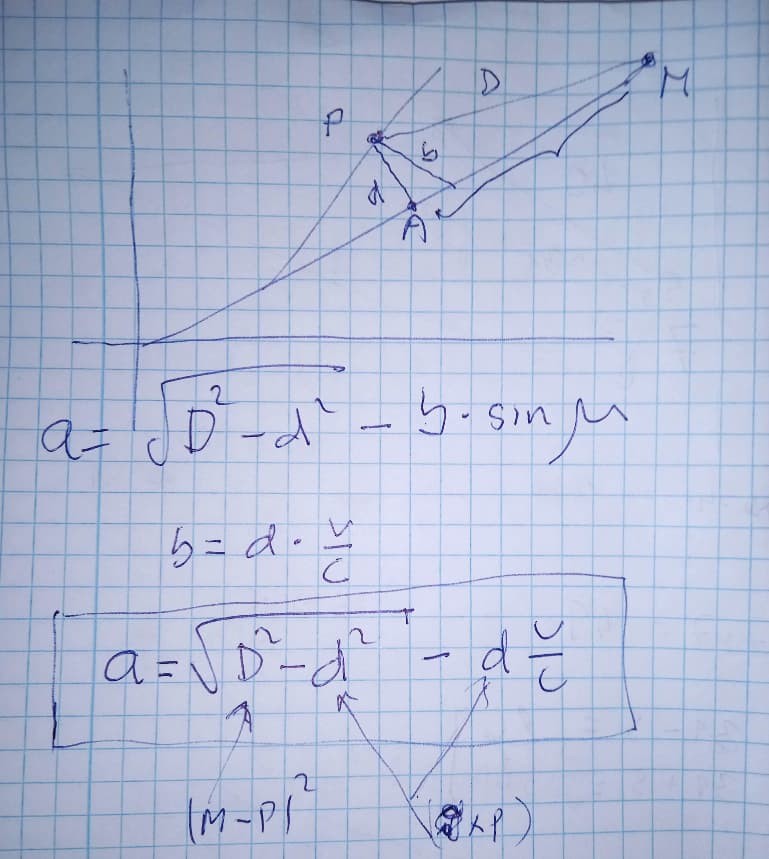 D
M
P
b
d
A
a = √(D² - d²) - b · sin μ
b = d · v/c
a = √(D² - d²) - d v/c
|M-P|²
( × P)